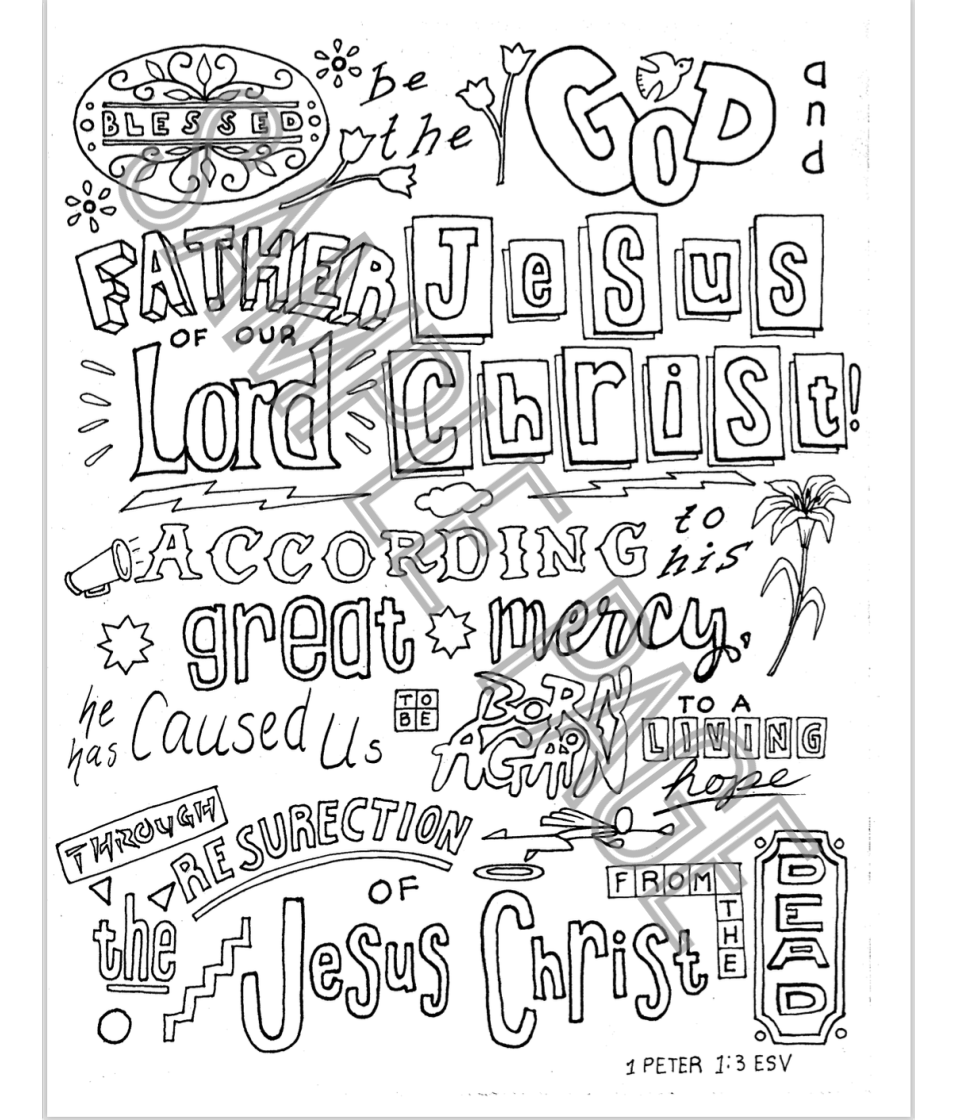 BLESSED be the GOD and
FATHER JeSuS
OF OUR
Lord ChriSt!
ACCORDING to his
great mercy,
he has Caused Us TO BE BORN AGAIN TO A LIVING hope
THROUGH the RESURECTION
OF
JesuS ChriSt FROM THE DEAD
1 PETER 1:3 ESV
SAMPLE PAGE